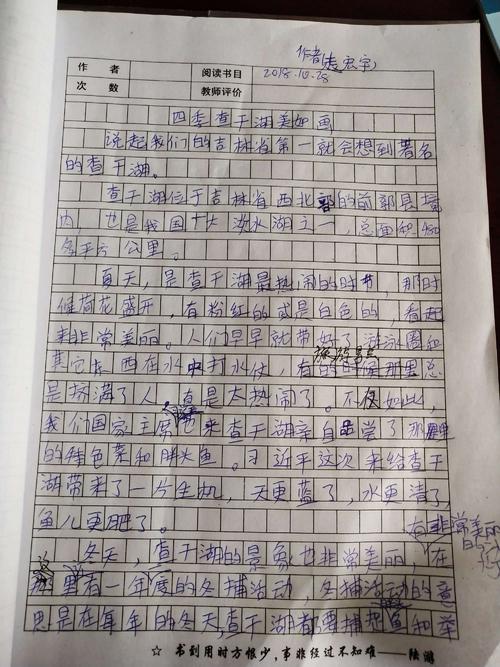 作者
2018.10.28
作 者 阅读书目
次 数 教师评价
四季查干湖美如画
说起我们的吉林省第一就会想到著名
的查干湖。
查干湖位于吉林省西北部的前郭县境
内，也是我国十大淡水湖之一，总面积480
多平方公里。
夏天，是查干湖最热闹的时节，那时
候荷花盛开，有粉红的或是白色的，看起
来非常美丽。人们早早就带好了游泳圈和
其它东西在水中打水仗，有的时候那里总
是挤满了人。真是太热闹了。不仅如此，
我们国家主席也来查干湖亲自品尝了那里
的特色菜和胖头鱼。习近平这次来给查干
湖带来了一片生机，天更蓝了，水更清了，
鱼儿更肥了。
有非常美丽的
冬天，查干湖的景象也非常美丽，在
那里有一年一度的冬捕活动，冬捕活动的意
思是在每年的冬天，查干湖都要捕捉鱼和举
☆ 书到用时方恨少，事非经过不知难——陆游